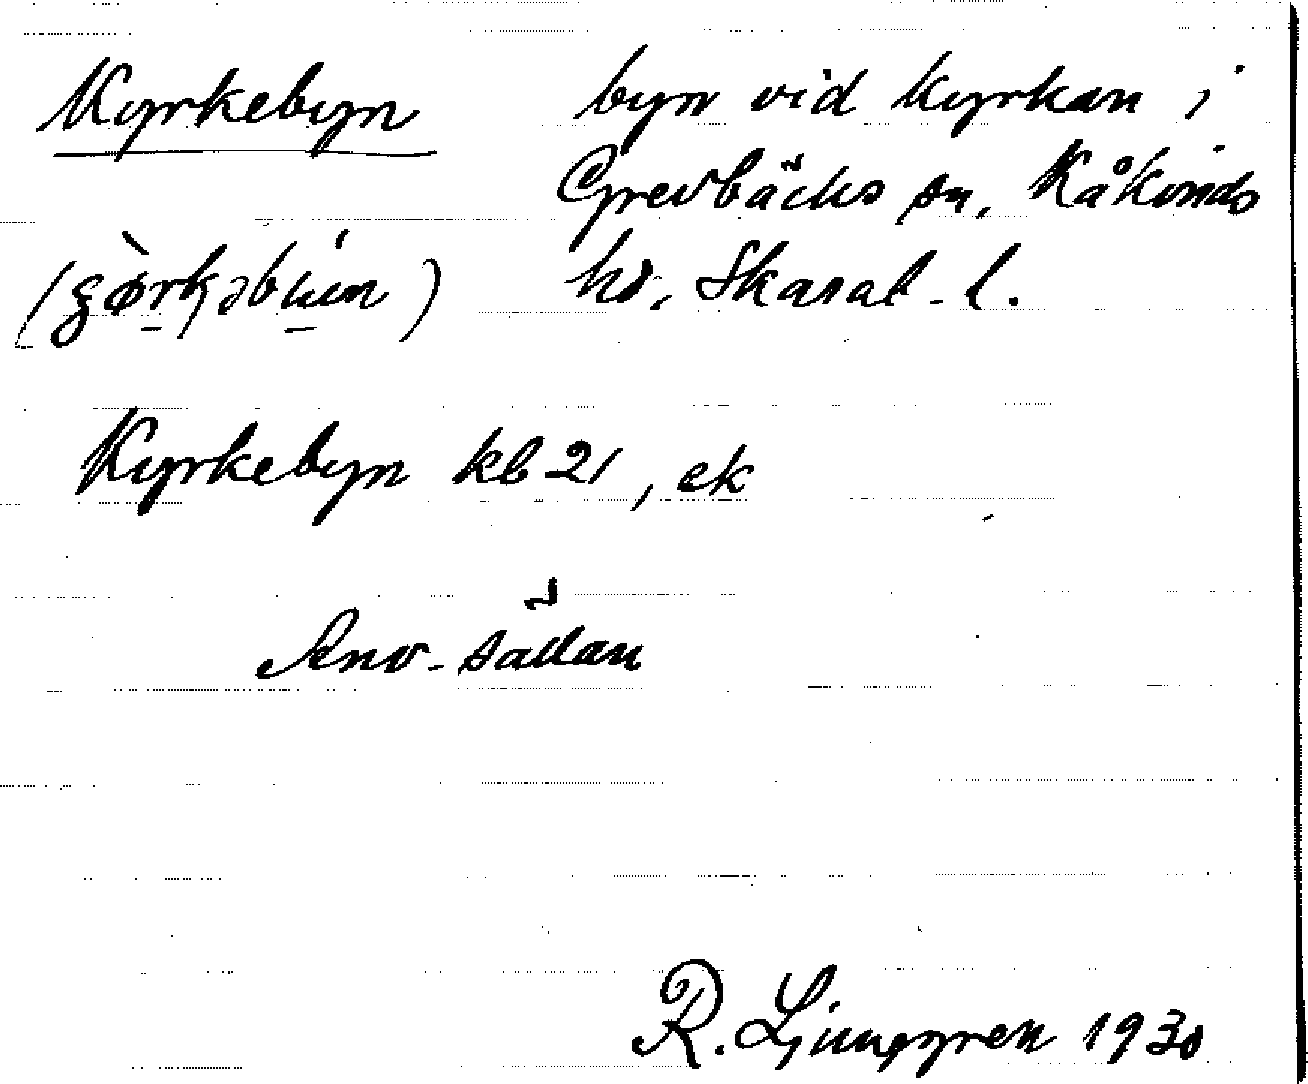 Kyrkebyn byn vid kyrkan i
Grevbäcks sn, Kåkinds
hd, Skarab. l.
Kyrkebyn kb 21, ek
Anv. sådan
R. Ljunggren 1930